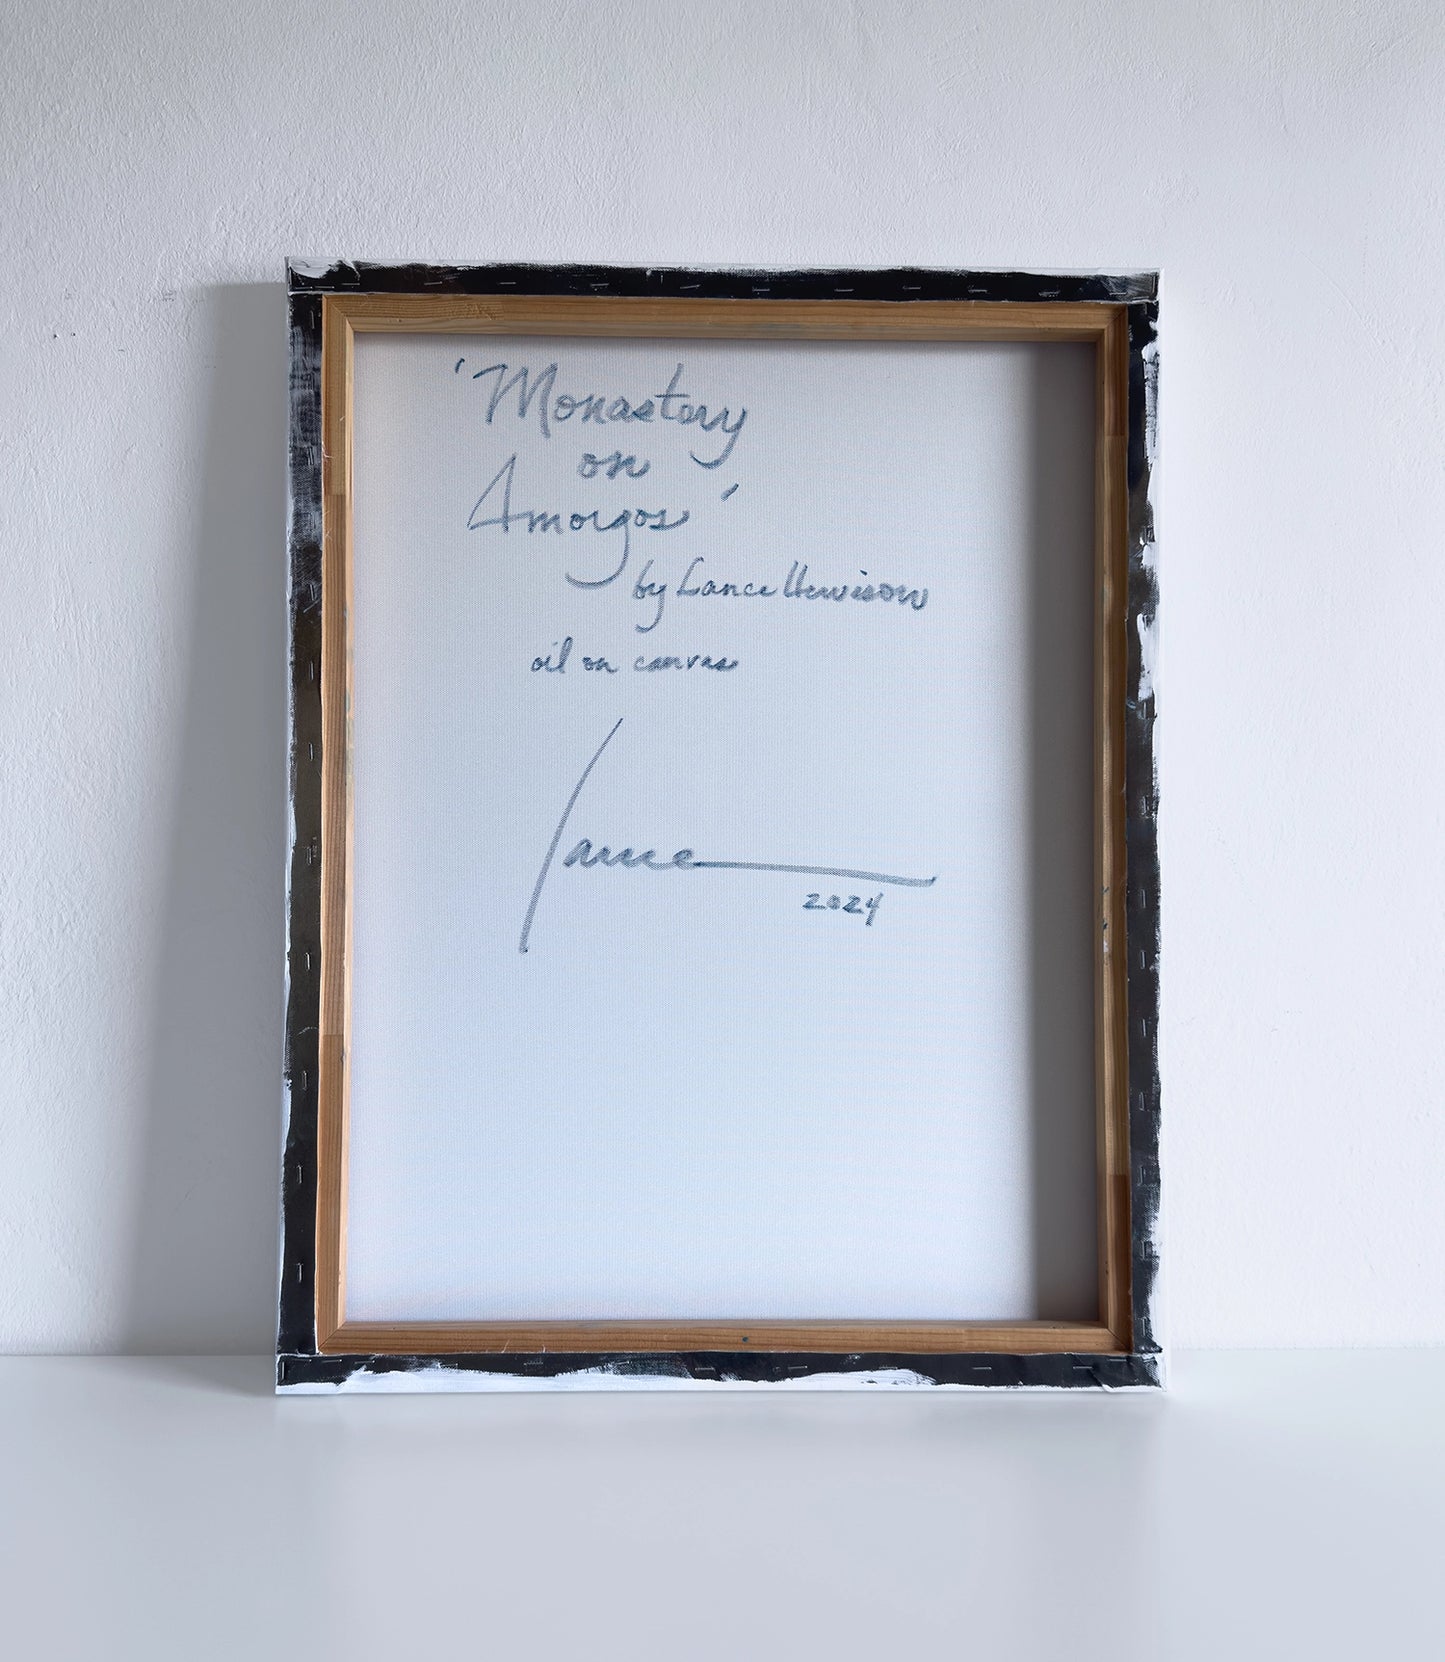 'Monastery
on
Amorgos'
by Lance Hewison
oil on canvas
Lance
2024